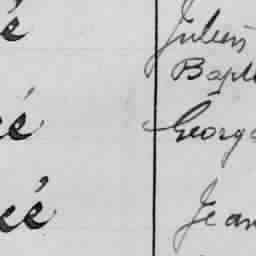 é Julien
Bapt
é George
eé Jean